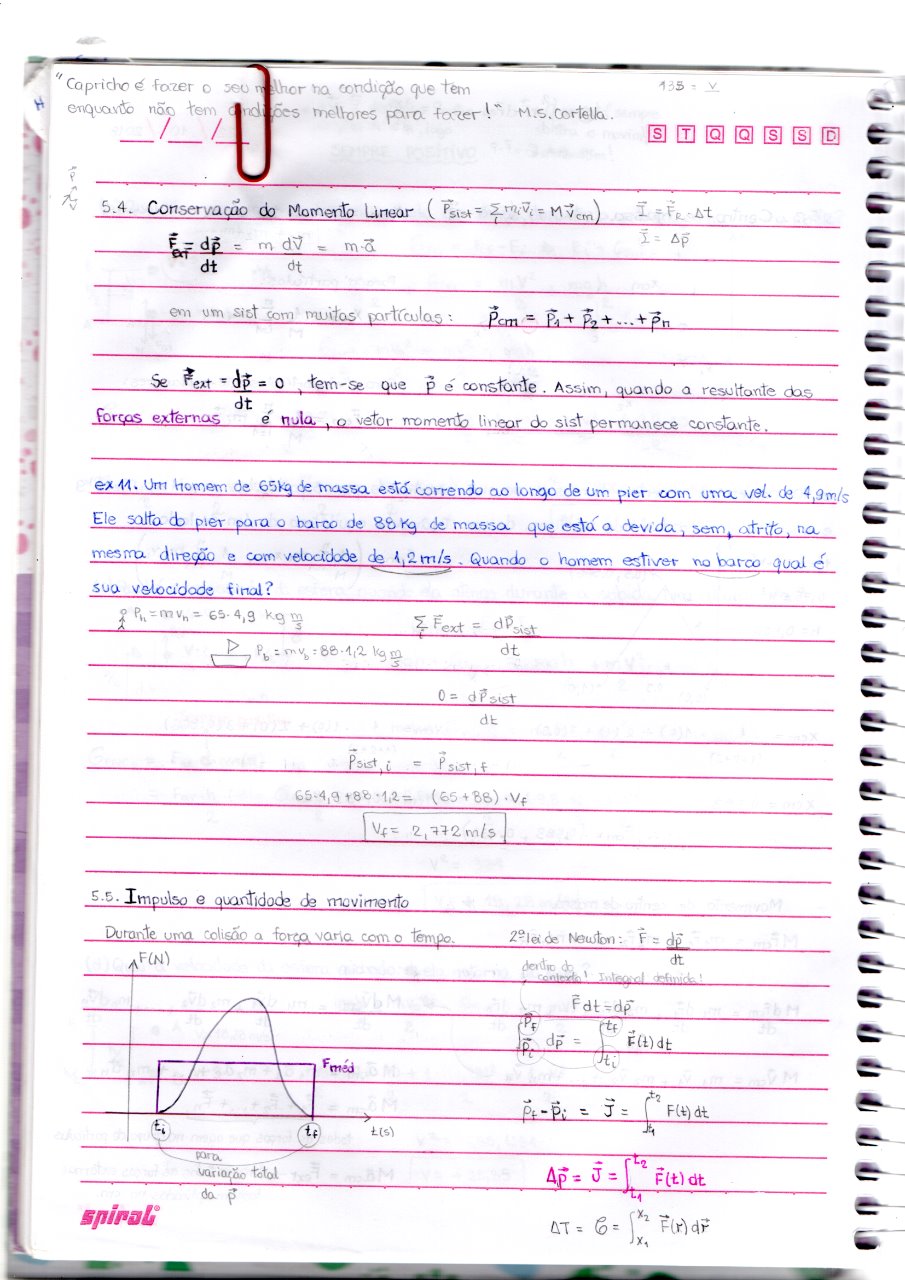 "Capricho é fazer o seu melhor na condição que tem
enquanto não tem condições melhores para fazer!" M.S. Cortella.
135 = V
__/__/__
S T Q Q S S D
5.4. Conservação do Momento Linear ( P⃗sist = Σ mᵢ v⃗ᵢ = M v⃗cm )
I⃗ = F⃗R = Δt
I⃗ = Δp⃗
F⃗ext = dp⃗/dt = m dv⃗/dt = m·a⃗
em um sist com muitas partículas: p⃗cm = p⃗1 + p⃗2 + ... + p⃗n
Se F⃗ext = dp⃗/dt = 0, tem-se que p⃗ é constante. Assim, quando a resultante das
forças externas é nula, o vetor momento linear do sist permanece constante.
ex 11. Um homem de 65kg de massa está correndo ao longo de um pier com uma vel. de 4,9m/s
Ele salta do pier para o barco de 88 kg de massa que está a devida, sem, atrito, na
mesma direção e com velocidade de 1,2 m/s. Quando o homem estiver no barco qual é
sua velocidade final?
Ph = m vh = 65·4,9 kg m/s
Σ F⃗ext = dP⃗sist/dt
Pb = m vb = 88·1,2 kg m/s
0 = dP⃗sist/dt
P⃗sist,i = P⃗sist,f
65·4,9 + 88·1,2 = (65+88)·Vf
Vf = 2,772 m/s
5.5. Impulso e quantidade de movimento
Durante uma colisão a força varia com o tempo.
2ª lei de Newton: F⃗ = dp⃗/dt
F(N)
dentro do contexto! Integral definida!
F⃗ dt = dp⃗
∫p⃗i^p⃗f dp⃗ = ∫ti^tf F⃗(t) dt
Fméd
p⃗f - p⃗i = J⃗ = ∫t1^t2 F(t) dt
ti tf t(s)
para
variação total
da p⃗
Δp⃗ = J⃗ = ∫t1^t2 F⃗(t) dt
ΔT = 𝒞 = ∫x1^x2 F⃗(r) dr⃗
spiral